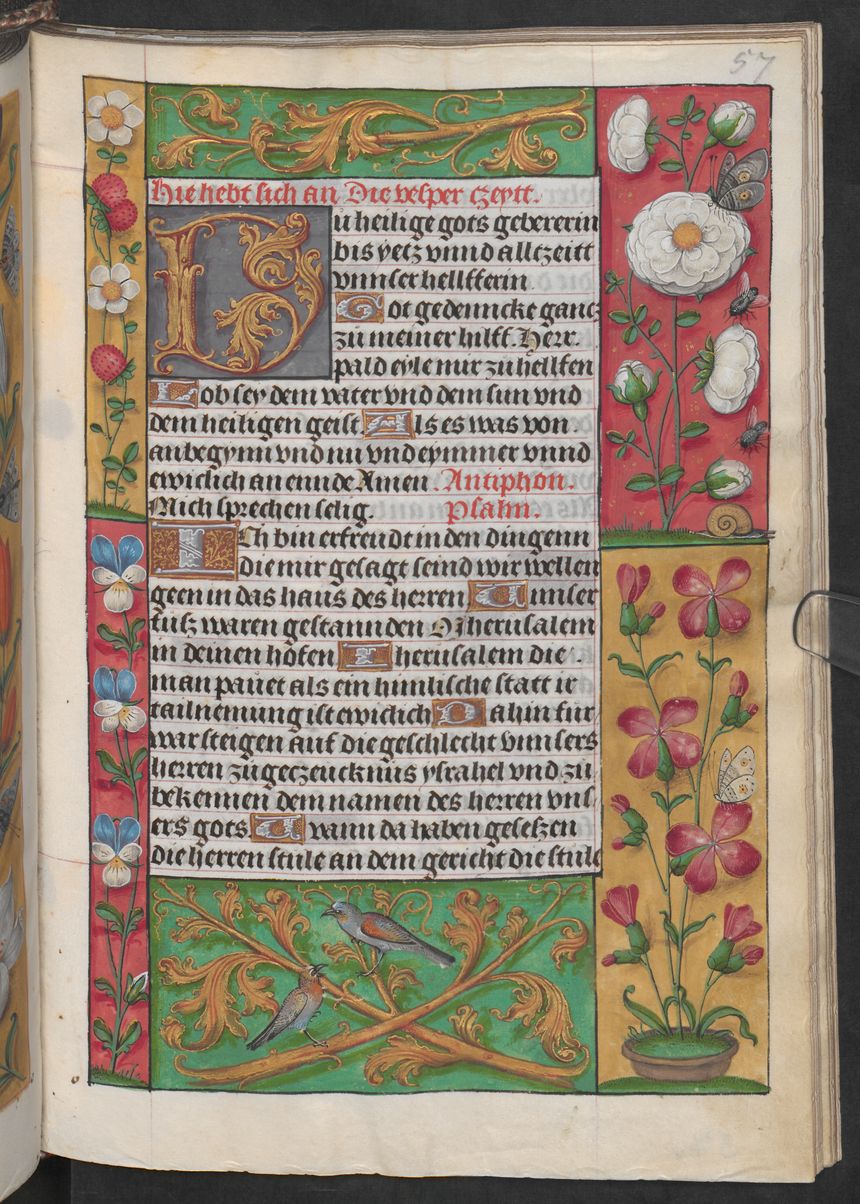 57
Hie hebt sich an Die vesper czeytt.
Du heilige gots gebererin
bis yetz vnnd allczeitt
vnnser hellfferin
Got gedenncke gancz
zu meiner hilff. Herr.
pald eyle mir zu hellfen
Lob sey dem vater vnd dem sun vnd
dem heiligen geist Als es was von
anbegynn vnd nu vnd eymmer vnnd
ewiclich an ennde Amen Antiphon.
Mich sprechen selig. Psalm.
Ich bin erfreudt in den dingenn
die mir gesagt seind wir wellen
geen in das haus des herren Vnnser
fusz waren gestannden O Jherusalem
in deinen hofen Jherusalem die
man pauet als ein himlische statt ir
tailnemung ist ewiclich Dahin für
war steigen auf die geschlecht vnnsers
herren zu geczeucknus ysrahel vnd zu
bekennen dem namen des herren vns
ers gots wann da haben gesessen
die herren stule an dem gericht die stule